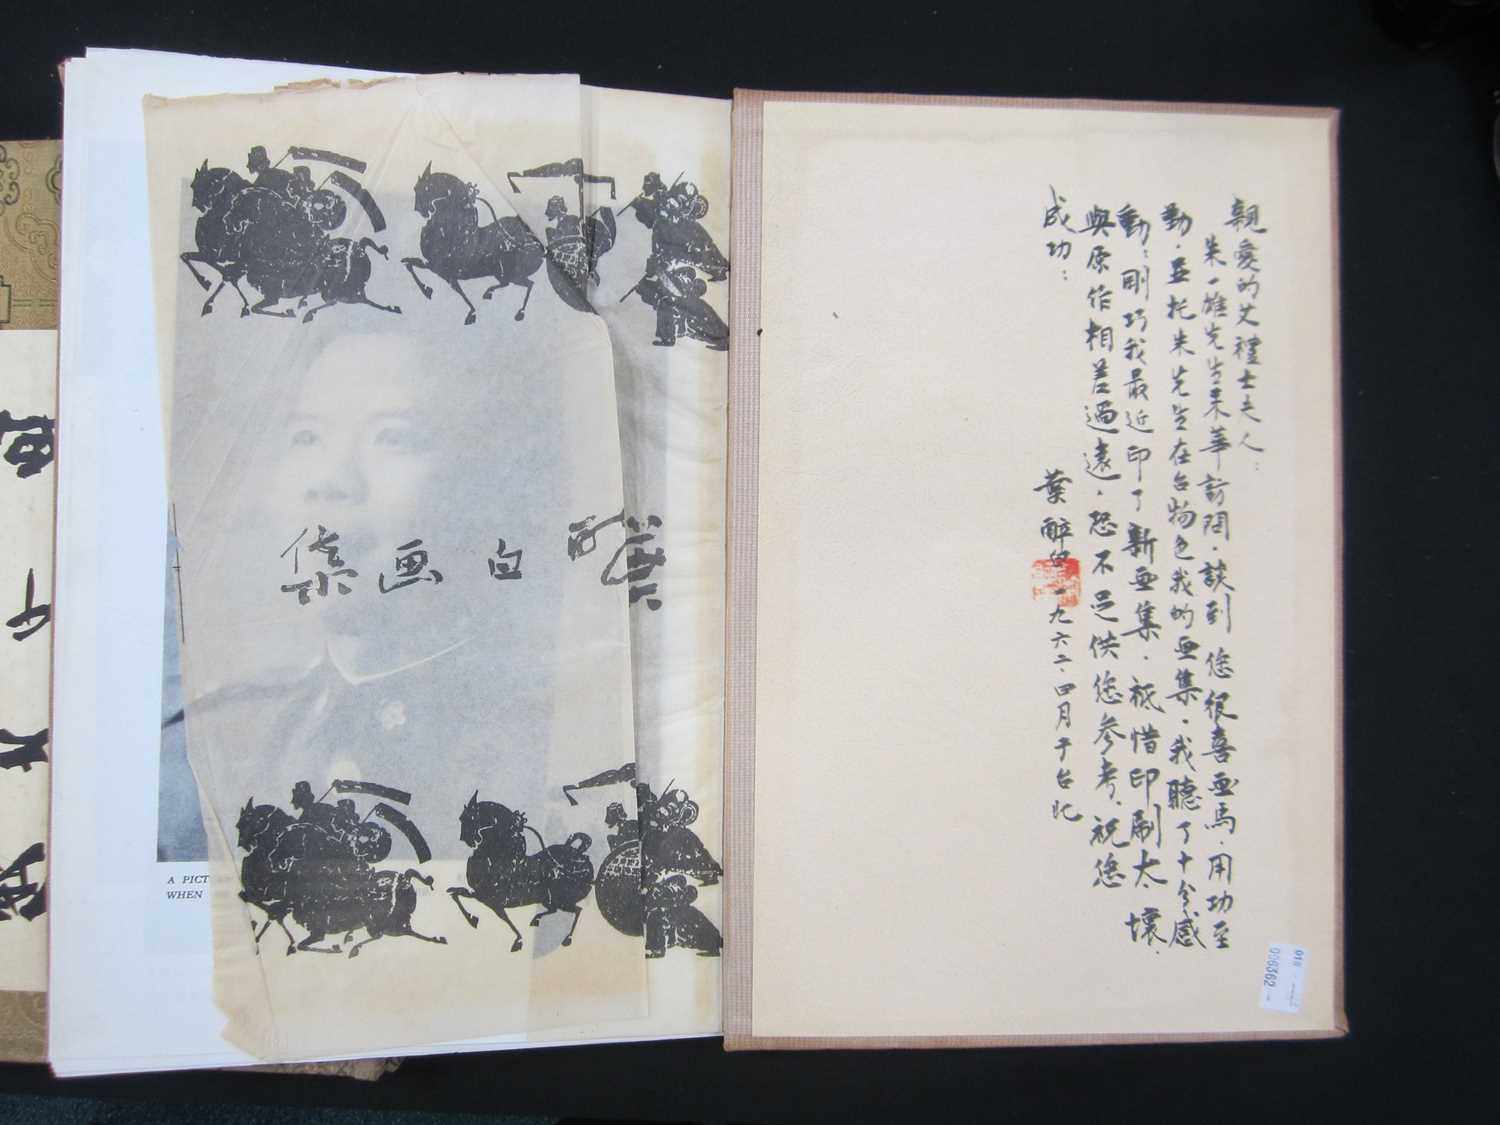 親愛的艾禮士夫人：
朱一雄先生來華訪問．談到 您很喜画馬．用功至
勤．並托朱先生在台物色我的画集．我聽了十分感
動；剛巧我最近印了新画集．祗惜印刷太壞．
與原作相差過遠．恐不足供您參考．祝您
成功：
葉醉白 一九六二．四月于台北
醉白画集
A PICT
WHEN
018
006362